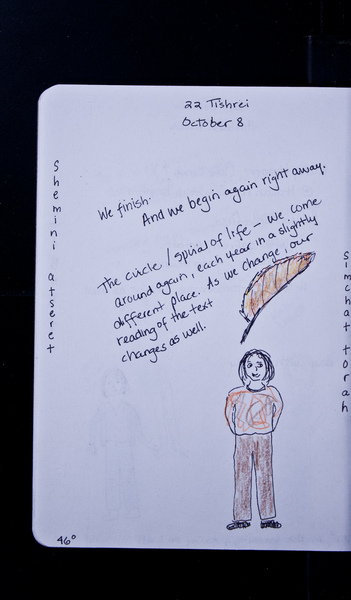 22 Tishrei
October 8
Shemini atseret
We finish.
And we begin again right away.
The circle / spiral of life – we come
around again, each year in a slightly
different place. As we change, our
reading of the text
changes as well.
simchat torah
46°